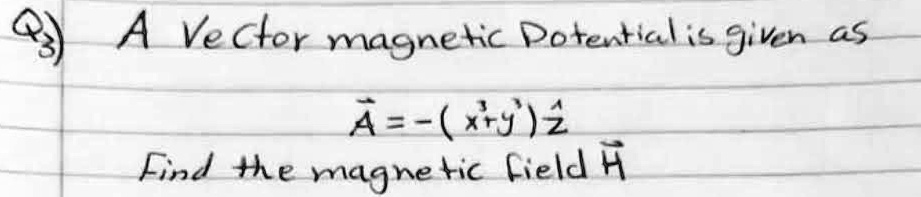 Q3) A Vector magnetic Potential is given as
A⃗ = -(x³+y³) ẑ
Find the magnetic field H⃗